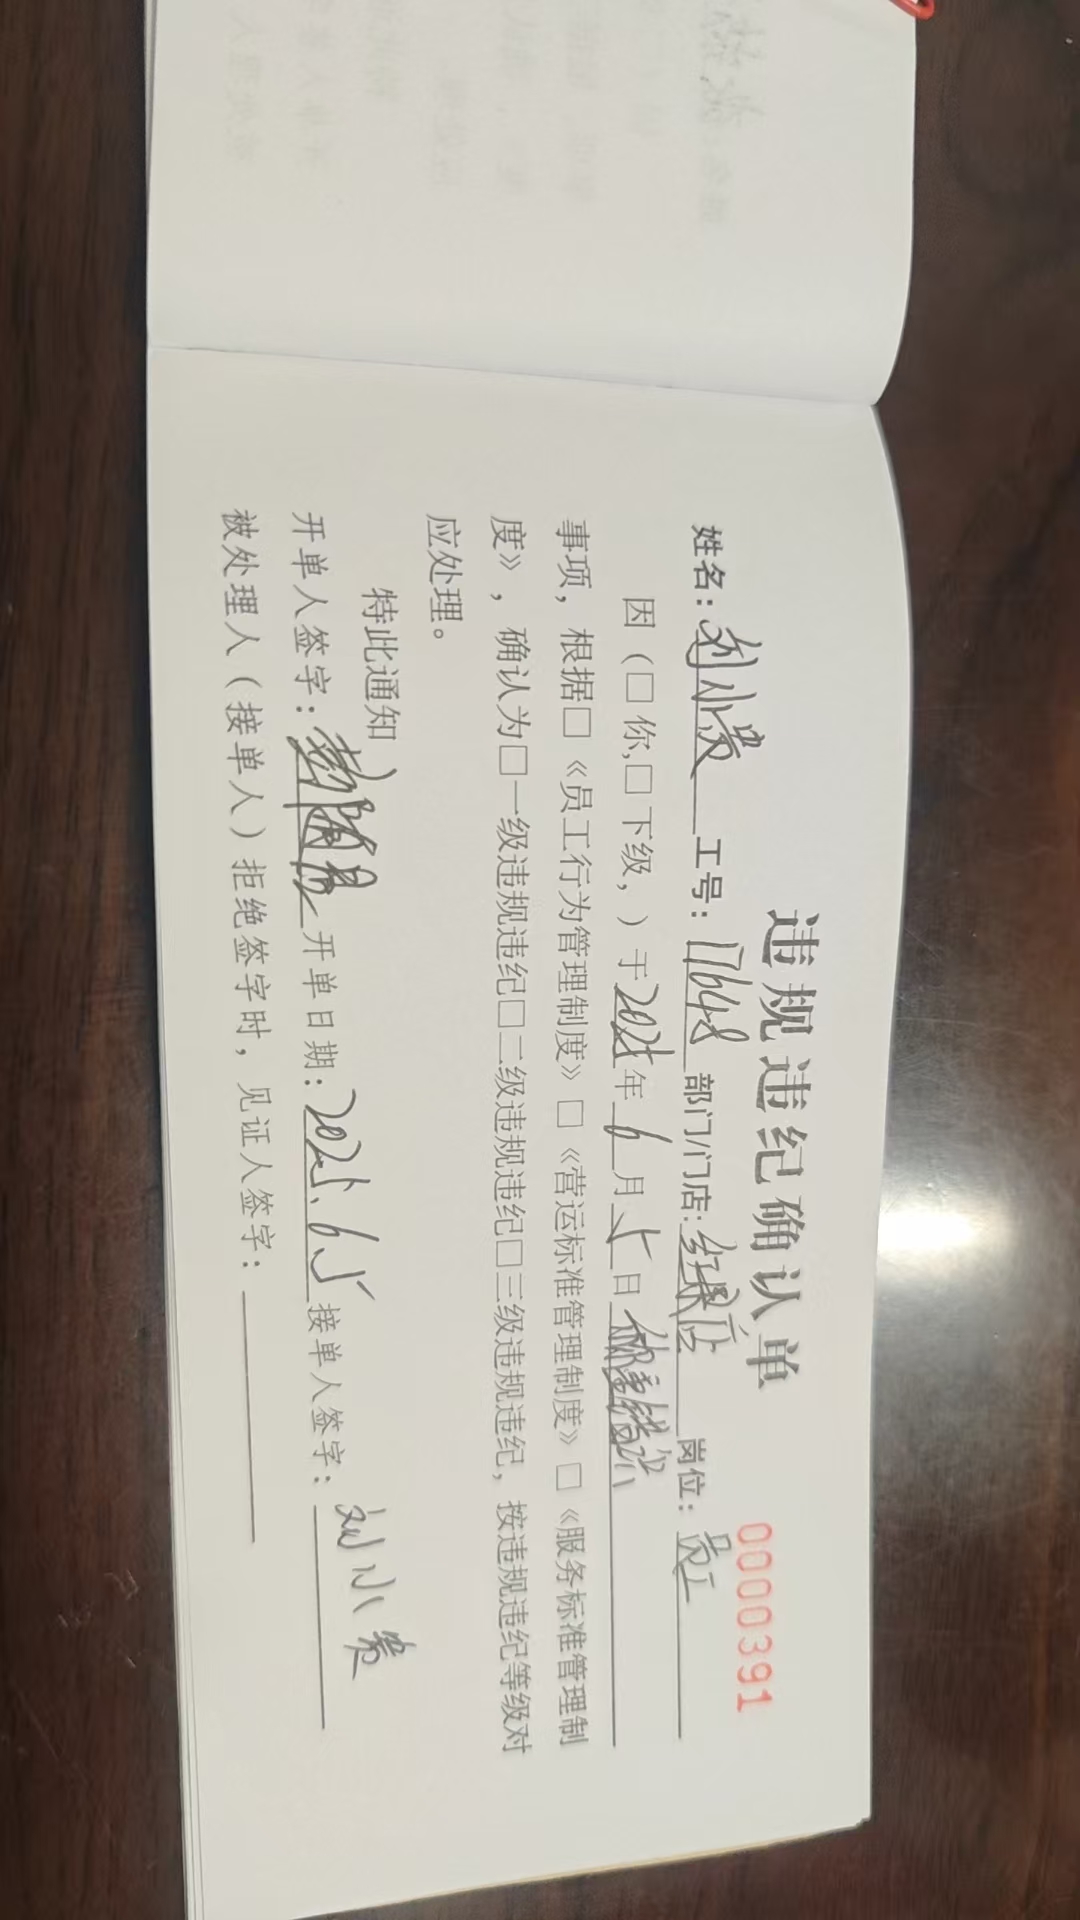 违规违纪确认单
0000391
姓名:刘小贵 工号:17648 部门/门店: 岗位:员工
因(□你,□下级,)于2025年6月5日
事项,根据□《员工行为管理制度》□《营运标准管理制度》□《服务标准管理制
度》,确认为□一级违规违纪□二级违规违纪□三级违规违纪,按违规违纪等级对
应处理。
特此通知
开单人签字: 开单日期:2025.6.5 接单人签字:刘小贵
被处理人(接单人)拒绝签字时,见证人签字: